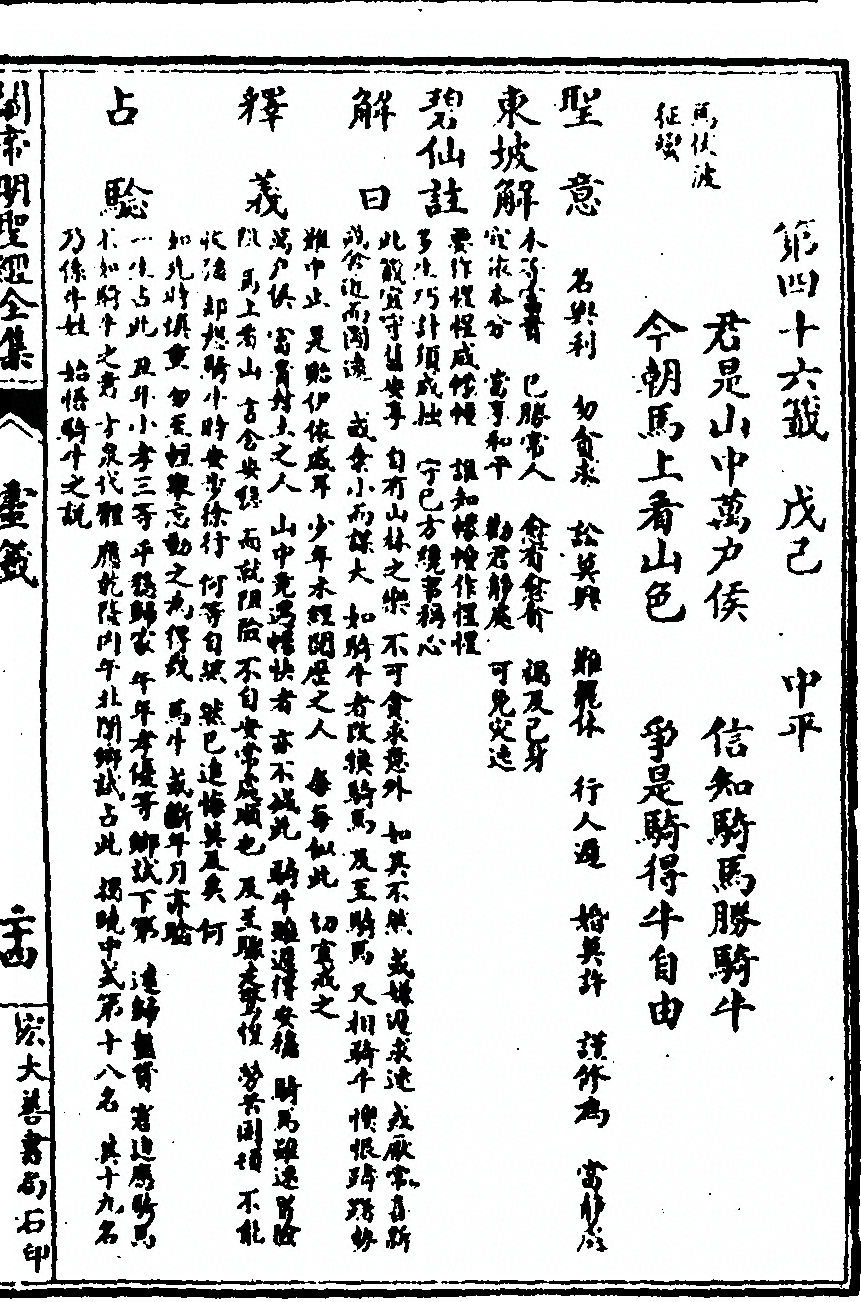 馬伏波
征蠻
第四十六籤　戊己　中平
君是山中萬户侯　信知騎馬勝騎牛
今朝馬上看山色　爭是騎得牛自由
聖意　名與利　勿貪求　訟莫興　難罷休　行人遲　婚莫許　謹修為　當静處
東坡解　本等富貴　已勝常人　愈有愈貪　禍及己身
守本分　當享和平　勸君静處　可免災迍
碧仙註　要作惺惺成懞懂　誰知懞懂作惺惺
多生巧計須成拙　守已方纔事稱心
解曰　此籤宜守舊安享　自有山林之樂　不可貪求意外　如其不然　或嫌遲求速　或厭常喜新
或舍近而圖遠　或棄小而謀大　如騎牛者改換騎馬　及至騎馬　又相騎牛　懊恨
難中止　是貽伊依戚耳　少年未經閱歷之人　每每似此　切宜戒之
釋義　萬户侯　富貴封土之人　山中竟遇悟快者　亦不減此　騎牛雖遲得安穩　騎馬雖速冒險
阻　馬上看山　言舍安穩　而就阻險　不自安常處順也　及至驅走驚惶　勞苦困頓　不能
收繮　却想騎牛時安步徐行　何等自然　然已追悔莫及矣　何
如先時慎重　勿至輕舉忘動之為得哉　馬牛或斷年月亦驗
占驗　一生占此　丑年小考三等　平穩歸家　午年考優等　鄉試下第
不如騎牛之者　才衆代難　應乾隆丙午北闈鄉試占此　揭曉中式第十八名　其十九名
乃係牛姓　始悟騎牛之説
關帝明聖經全集
靈籤
二十四
宏大善書局石印